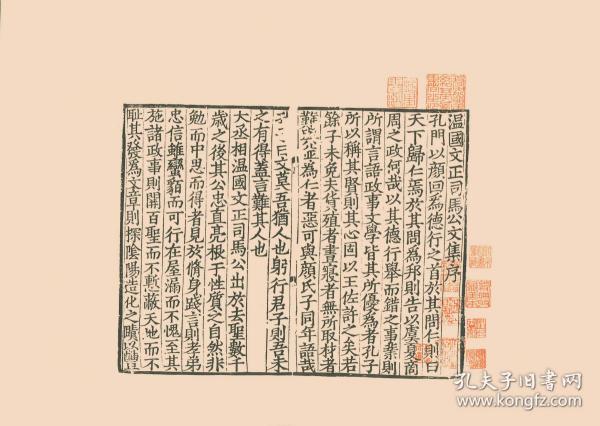 温國文正司馬公文集序
孔門以顔回為德行之首於其問仁則曰
天下歸仁焉於其問為邦則告以虞夏商
周之政何哉以其德行舉而錯之事業則
所謂言語政事文學皆其所優為者孔子
所以稱其賢則其心固以王佐許之矣若
餘子未免夫貨殖者晝寢者無所取材者
難並為仁者惡可與顔氏子同年語哉
曰文莫吾猶人也躬行君子則吾未
之有得蓋言難其人也
大丞相温國文正司馬公出於去聖數千
歲之後其公忠直亮根于性質之自然非
勉而中思而得者見於脩身踐言則孝弟
忠信雖蠻貊而可行在屋漏而不愧至其
施諸政事則開百聖而不慙蔽天地而不
恥其發為文章則探陰陽造化之賾以補
孔夫子旧书网
www.kongfz.com